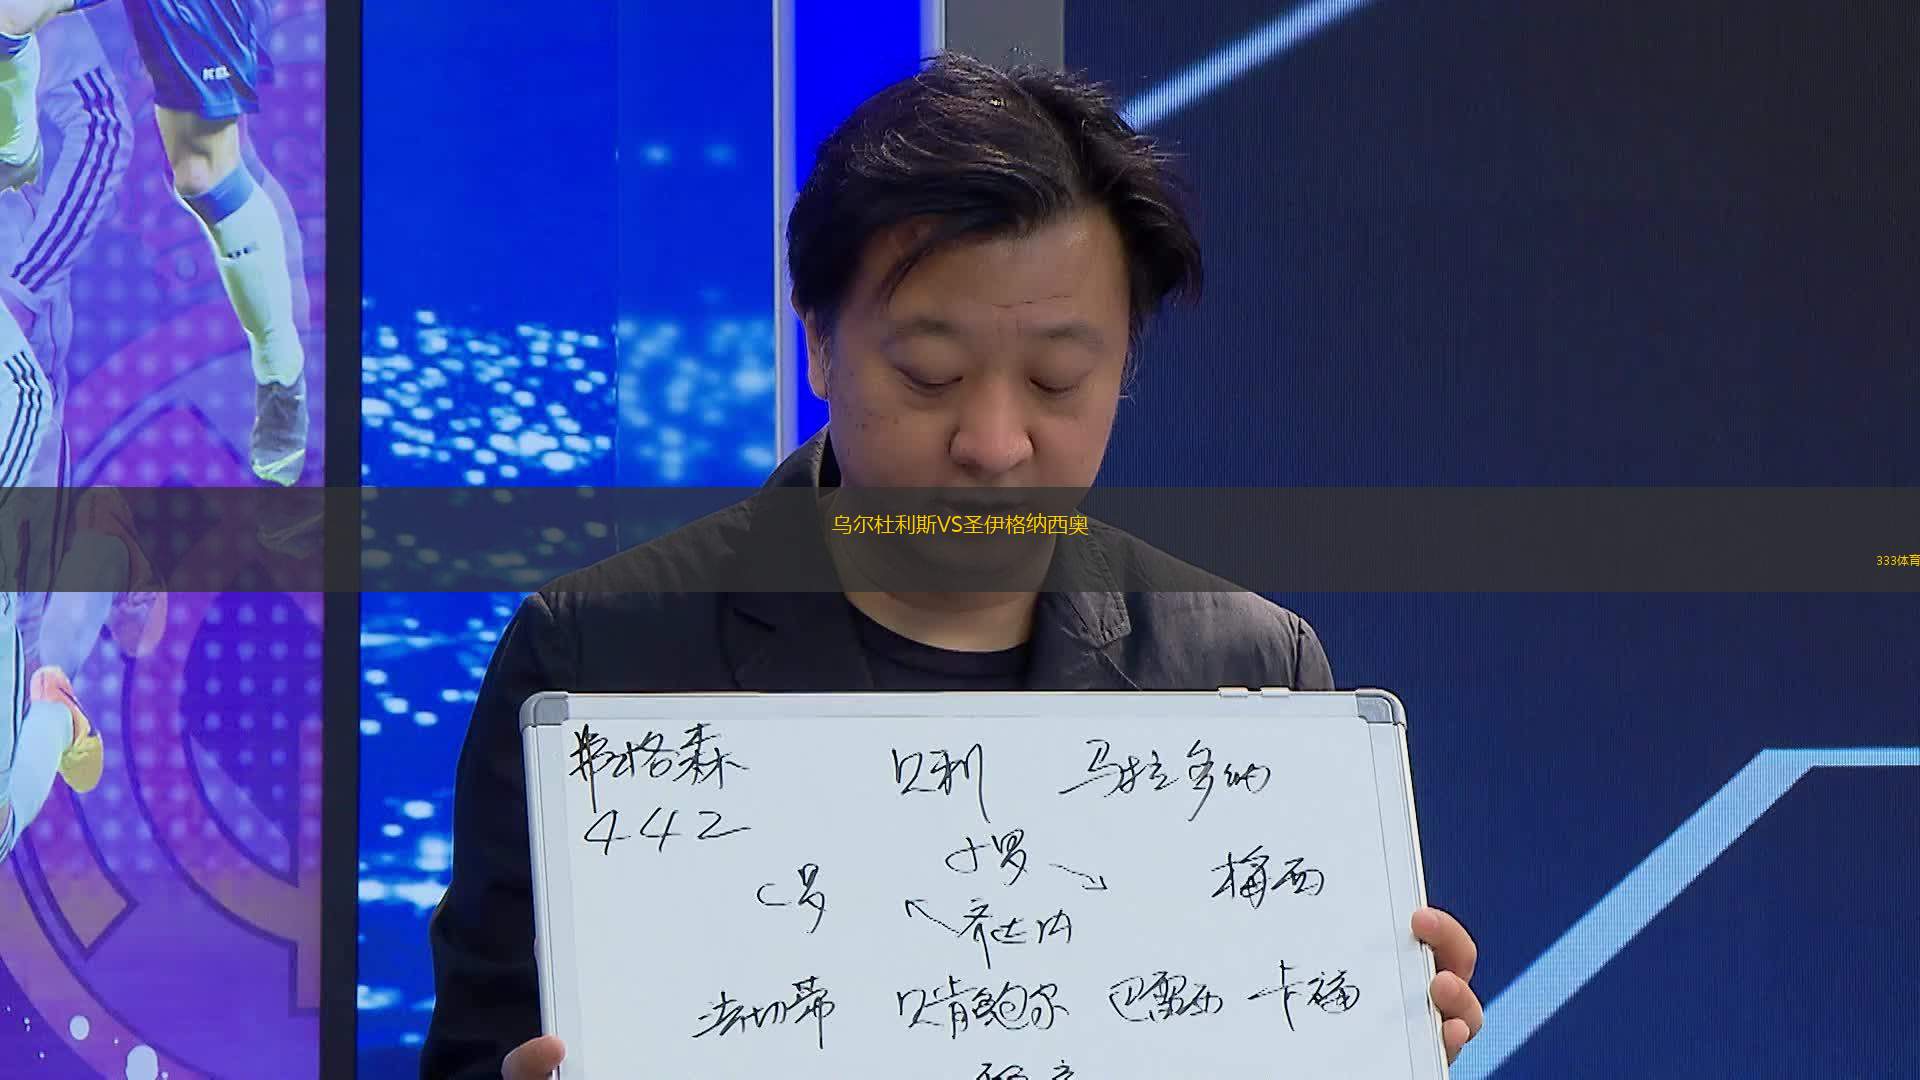 乌尔杜利斯VS圣伊格纳西奥
333体育
弗格森 贝利 马拉多纳
442
小罗
C罗 梅西
齐达内
法切蒂 贝肯鲍尔 巴雷西 卡福